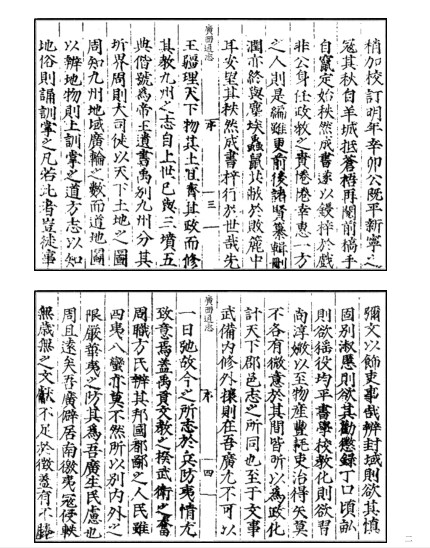 稍加校訂明年辛卯公既平新寧之
寇其秋自羊城抵蒼梧再閱前稿手
自竄定始秩然成書遂以鋟梓於戲
非公身任政教之責惓惓幸惠一方
之人則是編雖更前後諸賢纂輯刪
潤亦終與塵埃蟲鼠共敝於敗簏中
耳安望其秩然成書梓行於世哉先
廣西通志 序 三
王疆理天下物其土宜齊其政而修
其教九州之志自上世已與三墳五
典偕號為帝王遺書禹別九州分其
圻界周則大司徒以天下土地之圖
周知九州地域廣輪之數而道地圖
以辨地物則土訓掌之道方志以知
地俗則誦訓掌之凡若此者豈徒事
彌文以飾吏事哉辨封域則欲其慎
固別淑慝則欲其勸懲錄丁口頃畝
則欲徭役均平書學校教化則欲習
尚淳媺以至物產豐耗吏治得失莫
不各有微意於其間皆所以為政化
計天下郡邑志之所同也至于文事
武備內修外攘則在吾廣尤不可以
廣西通志 序 四
一日弛故今之所志於兵防夷情尤
致意焉蓋禹貢文教之揆武衛之奮
周職方氏辨其邦國都鄙之人民雖
四夷八蠻亦莫不然所以別內外之
限嚴華夷之防其為吾廣生民慮也
周且遠矣吾廣僻居南徼夷寇侵軼
無歲無之文獻不足於徵蓋有不勝
二